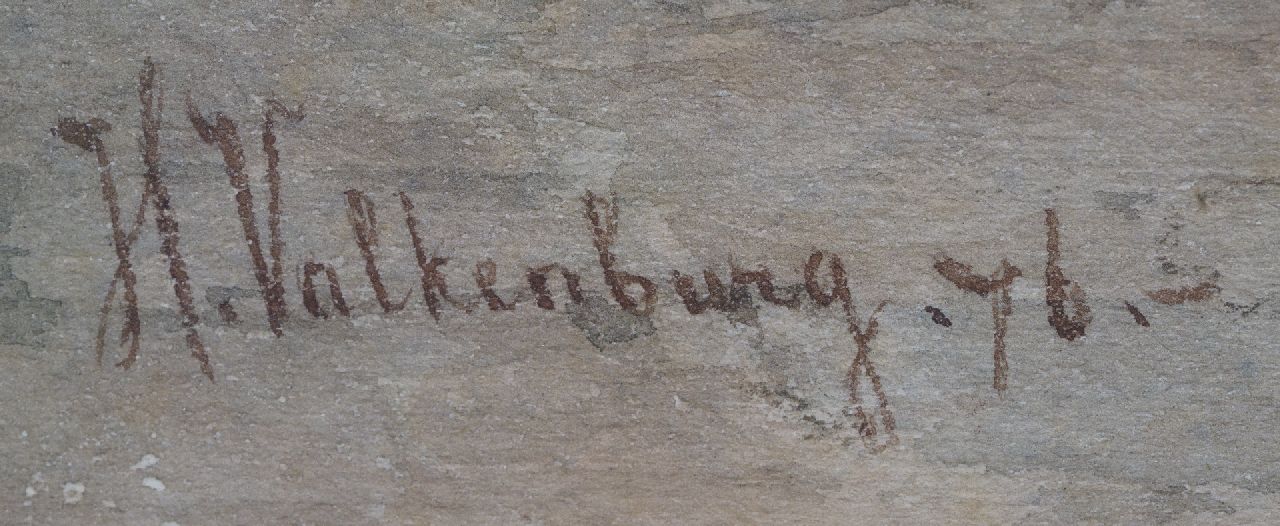 H. Valkenburg. 76.